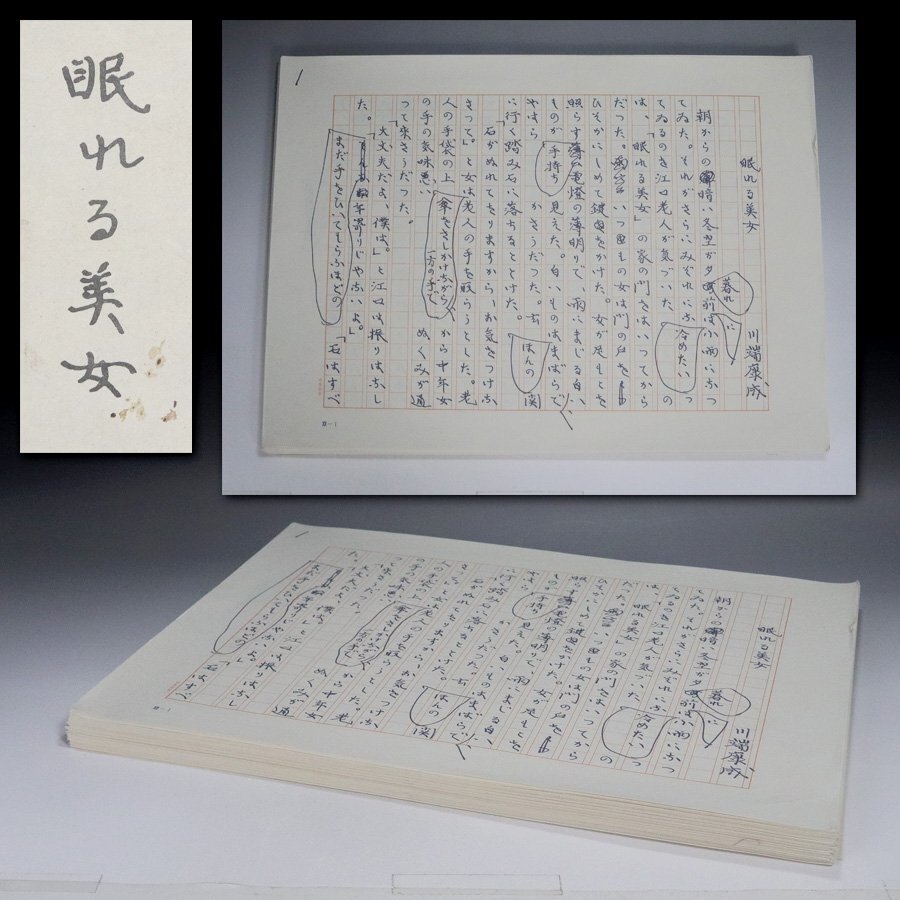 眠れる美女
眠れる美女
川端康成
朝からの暗い冬空が夕暮れ前に冷めたい小雨になつ
てゐた。それがさらにみぞれになつ
てゐるのを江口老人が気づいた
は、「眠れる美女」の家の門をはいつてから
だつた。いつもの女は門の戸を
ひそかにしめて鍵をかけた。女が足もとを
照らす電燈の薄明りで、雨にまじる白い
ものが手持ち見えた。白いものはほんのまばらで、
やはらかさうだつた。玄関
に行く踏み石に落ちるととけた。
「石がぬれてをりますから、お気をつけな
さつて。」と女は老人の手を取らうとした。老
人の手袋の上傘をさしかけながら、一方の手でから中年女
の手の気味悪いぬくみが通
つて来さうだつた。
「大丈夫だよ、僕は。」と江口は振りはなし
た。「まだ手をひいてもらふほどの年寄りじやないよ。」
「石はすべ